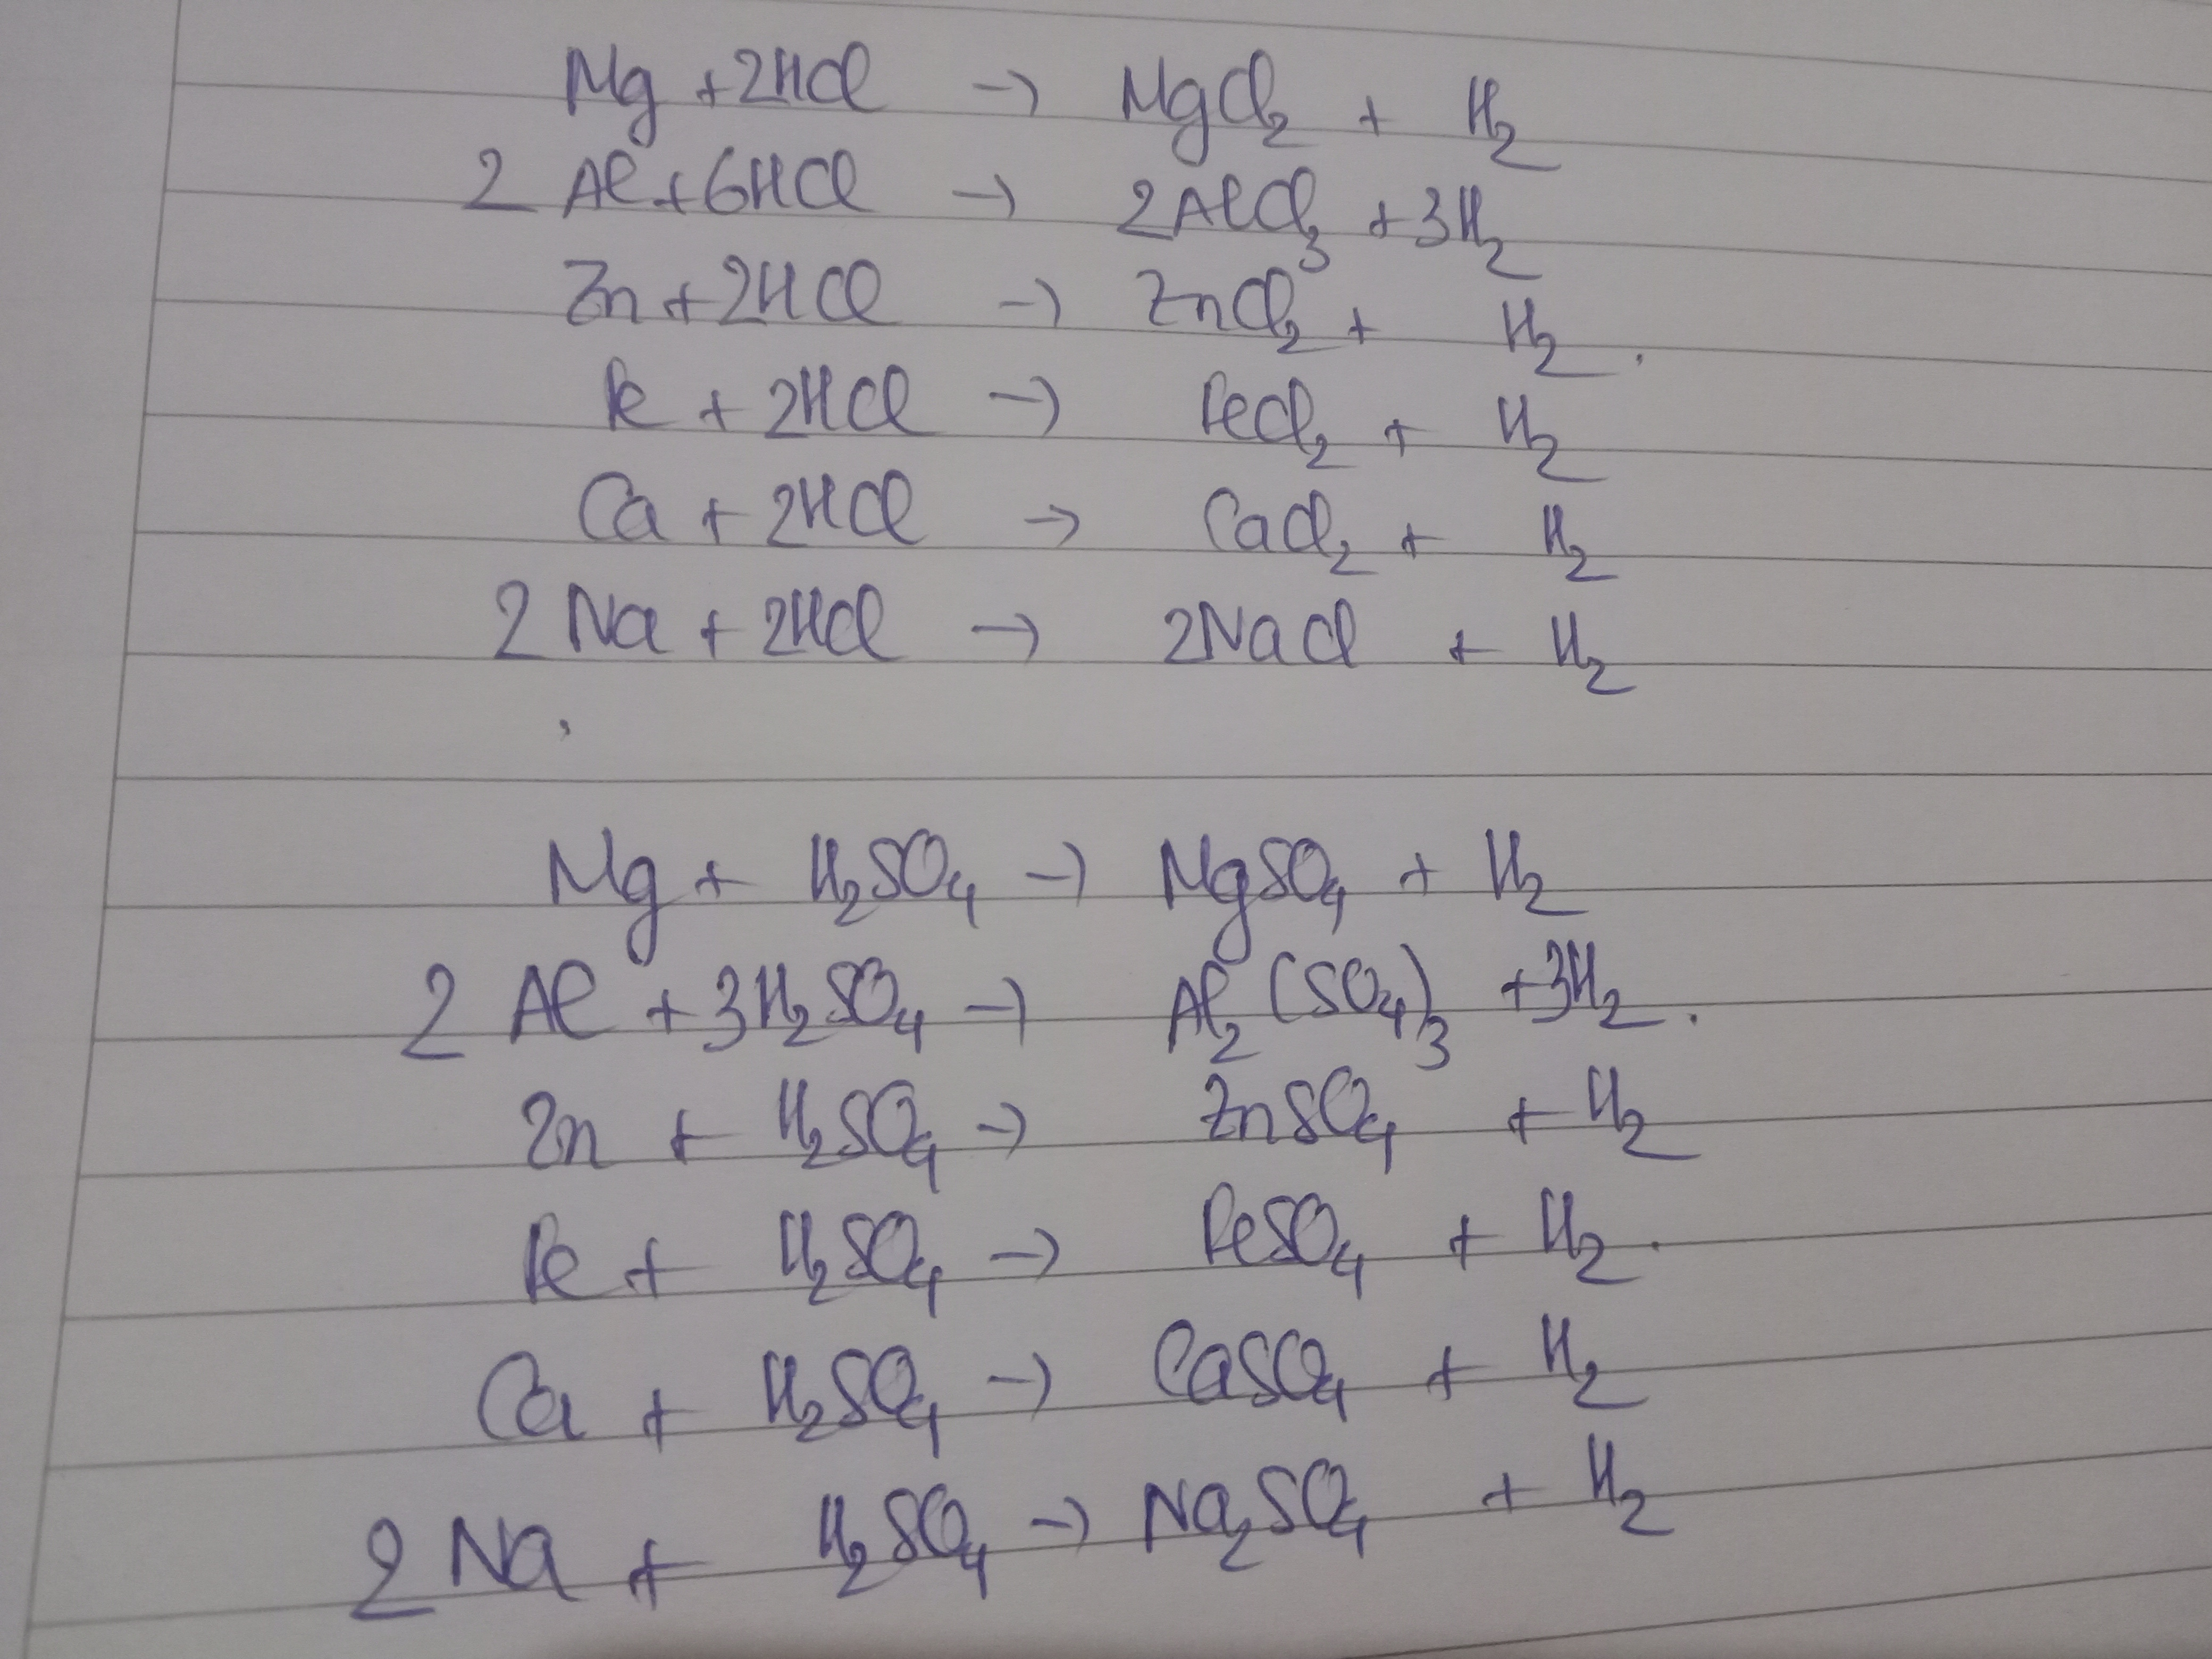 Mg + 2HCl → MgCl₂ + H₂
2 Al + 6HCl → 2AlCl₃ + 3H₂
Zn + 2HCl → ZnCl₂ + H₂.
Fe + 2HCl → FeCl₂ + H₂
Ca + 2HCl → CaCl₂ + H₂
2 Na + 2HCl → 2NaCl + H₂
Mg + H₂SO₄ → MgSO₄ + H₂
2 Al + 3H₂SO₄ → Al₂(SO₄)₃ + 3H₂.
Zn + H₂SO₄ → ZnSO₄ + H₂
Fe + H₂SO₄ → FeSO₄ + H₂.
Ca + H₂SO₄ → CaSO₄ + H₂
2 Na + H₂SO₄ → Na₂SO₄ + H₂